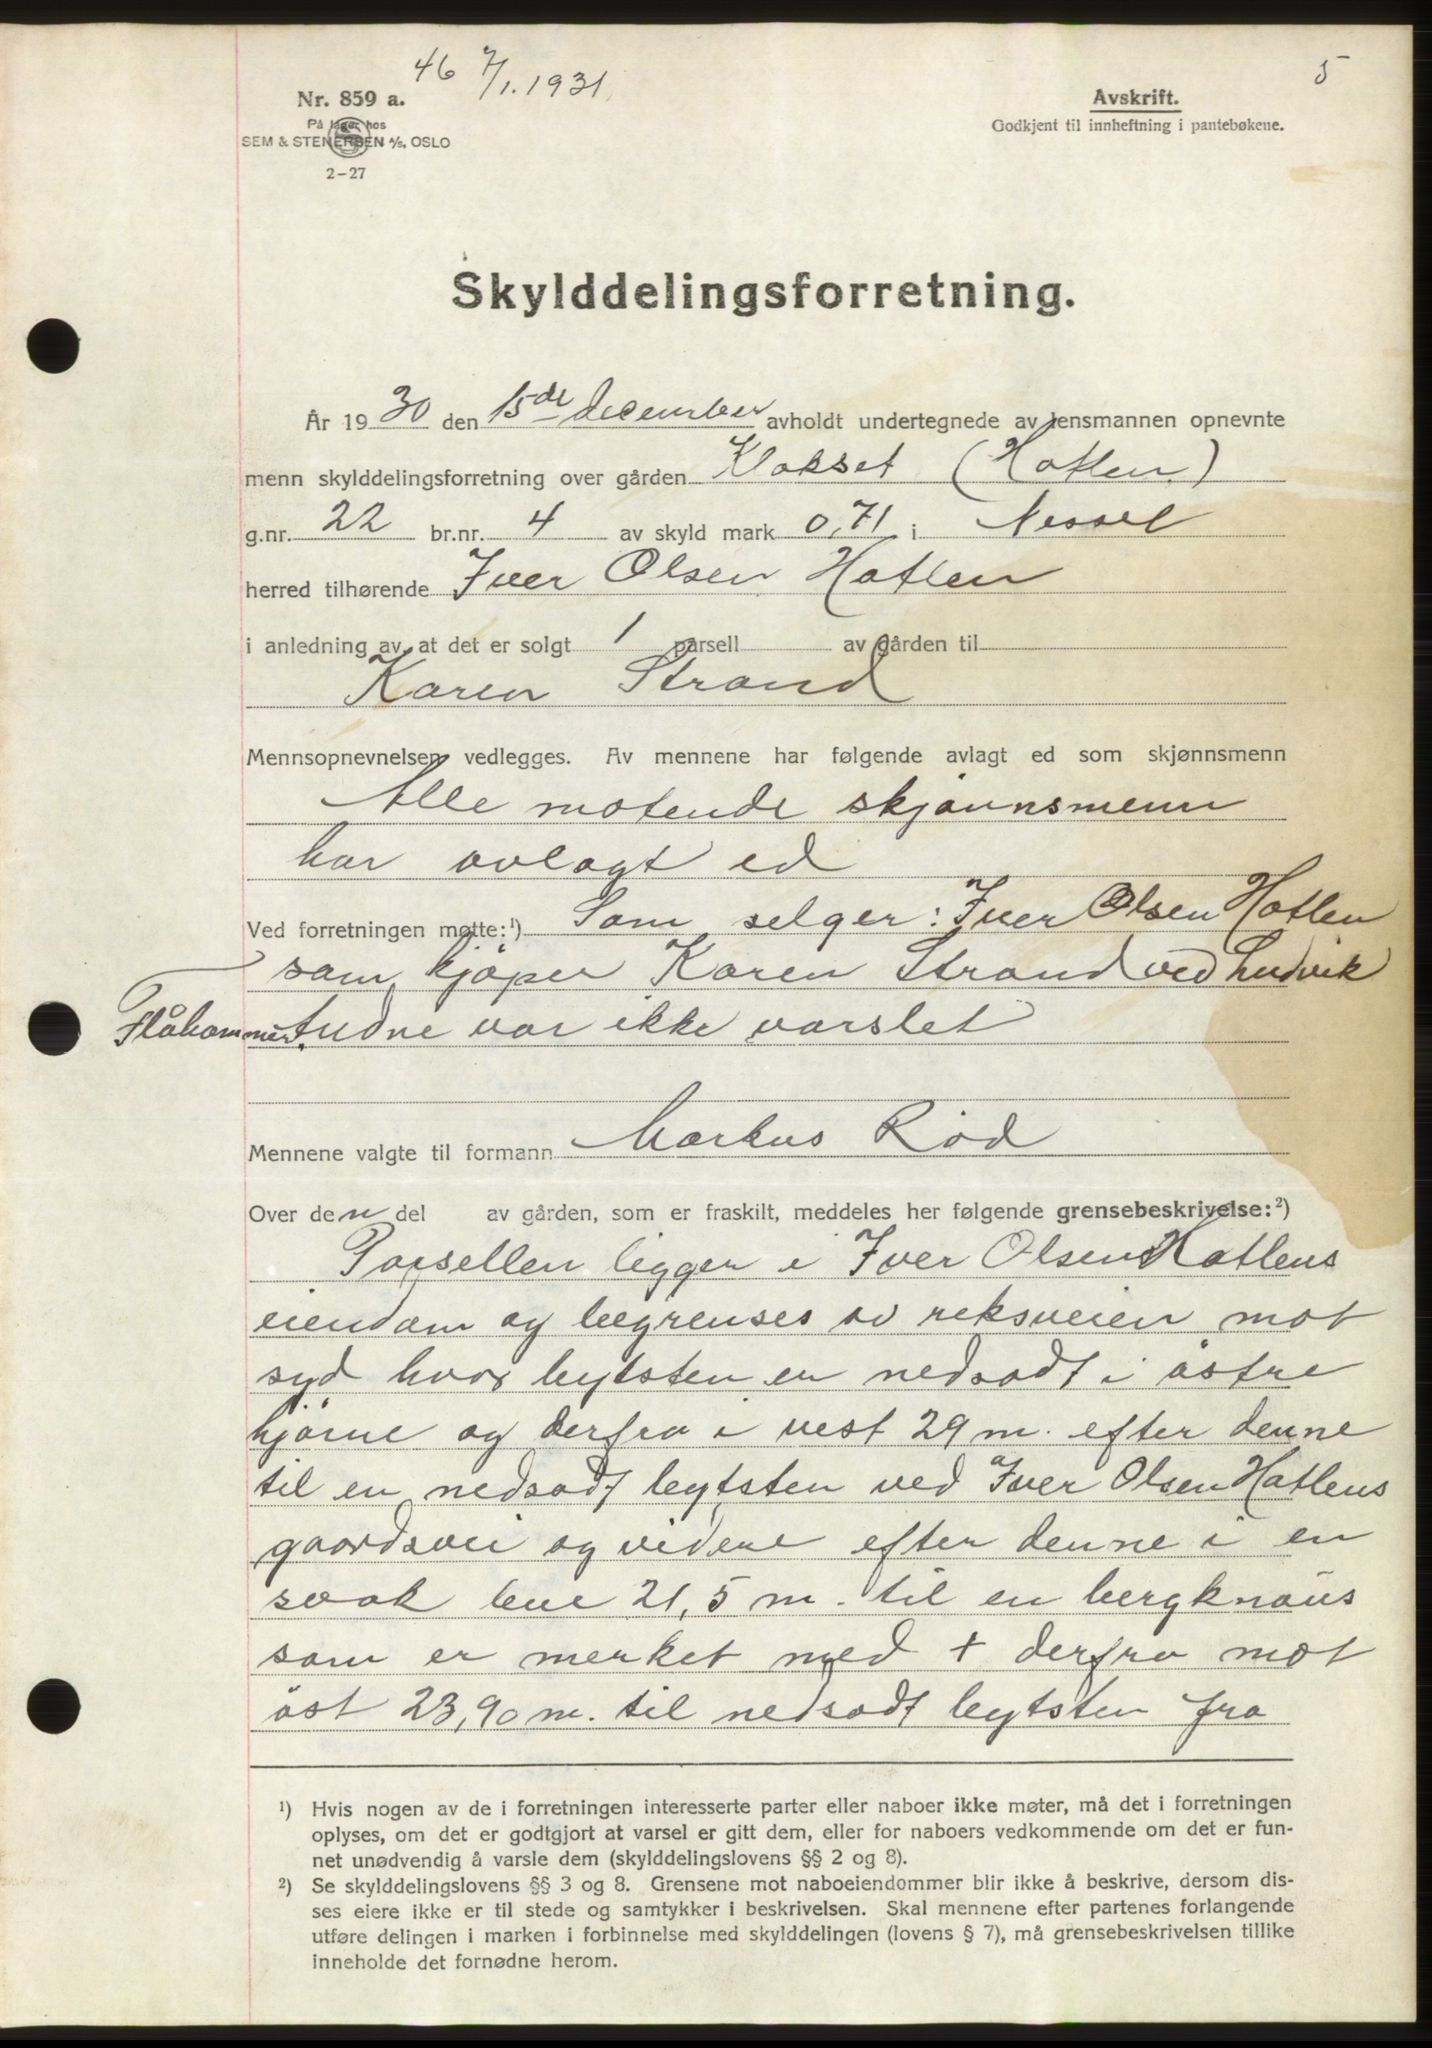 46 7/1. 1931.
5
Nr. 859 a.
På lager hos
SEM & STENERSEN A/S, OSLO
2-27
Avskrift.
Godkjent til innheftning i pantebøkene.
Skylddelingsforretning.
År 1930 den 15de december avholdt undertegnede av lensmannen opnevnte
menn skylddelingsforretning over gården Klokset (Hatlen)
g.nr. 22 br.nr. 4 av skyld mark 0,71 i Nesset
herred tilhørende Iver Olsen Hatlen
i anledning av at det er solgt 1 parsell av gården til
Karen Strand
Mennsopnevnelsen vedlegges. Av mennene har følgende avlagt ed som skjønnsmenn
Alle møtende skjønnsmenn
har avlagt ed
Ved forretningen møtte:¹) Som selger: Iver Olsen Hatlen
som kjøper Karen Strand ved Ludvik
Flåhammer. Andre var ikke varslet
Mennene valgte til formann Markus Rød
Over den del av gården, som er fraskilt, meddeles her følgende grensebeskrivelse:²)
Parsellen ligger i Iver Olsen Hatlens
eiendom og begrenses av reksveien mot
syd hvor bytsten er nedsadt i østre
hjørne og derfra i vest 29 m. efter denne
til en nedsadt bytsten ved Iver Olsen Hatlens
gaardsvei og videre efter denne i en
svak bue 21,5 m. til en bergknaus
som er merket med + derfra mot
øst 23,90 m. til nedsadt bytsten fra
¹) Hvis nogen av de i forretningen interesserte parter eller naboer ikke møter, må det i forretningen
oplyses, om det er godtgjort at varsel er gitt dem, eller for naboers vedkommende om det er fun-
net unødvendig å varsle dem (skylddelingslovens §§ 2 og 8).
²) Se skylddelingslovens §§ 3 og 8. Grensene mot naboeiendommer blir ikke å beskrive, dersom dis-
ses eiere ikke er til stede og samtykker i beskrivelsen. Skal mennene efter partenes forlangende
utføre delingen i marken i forbinnelse med skylddelingen (lovens § 7), må grensebeskrivelsen tillike
inneholde det fornødne herom.